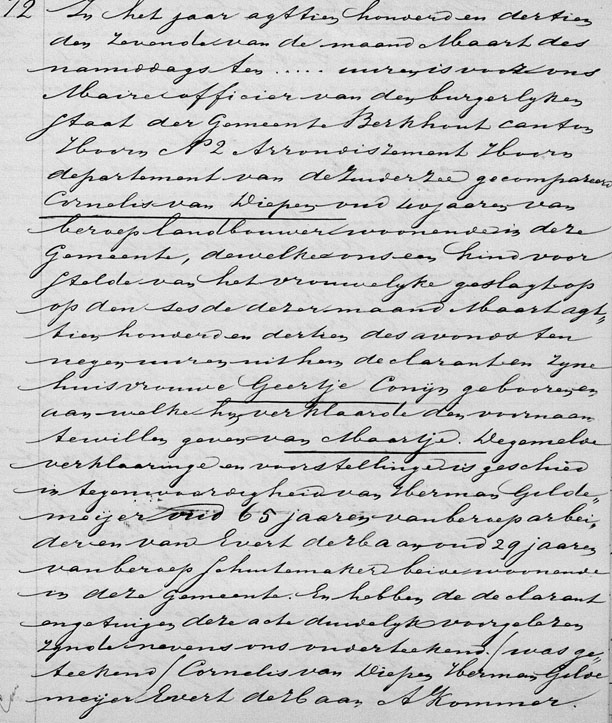 12 In het jaar agttien honderd en dertien
den zevende van de maand Maart des
namiddags ten ..... uuren is voor ons
Maire officier van den burgerlyken
Staat der Gemeente Berkhout canton
Hoorn N 2 Arrondissement Hoorn
departement van de Zuiderzee gecompareerd
Cornelis van Diepen oud 40 jaaren van
beroep landbouwer woonende in deze
Gemeente, dewelke ons een kind voor
stelde van het vrouwelyke geslagt op
op den sesde dezer maand Maart agt-
tien honderd en dertien des avonds ten
negen uuren uit hem declarant en zyne
huisvrouwe Geertje Conyn gebooren en
aan welke hy verklaarde den voornaam
te willen geven van Maartje. De gemelde
verklaaringe en voorstellinge is geschied
in tegenwoordigheid van Herman Gelde-
meijer oud 65 jaaren van beroep arbei-
der en van Evert de Haan oud 29 jaaren
van beroep Schuitemaker beide woonende
in deze gemeente. En hebben de declarant
en getuigen deze acte duidelyk voorgelezen
zynde nevens ons onderteekend. / was ge-
teekend / Cornelis van Diepen Herman Gelde
meijer Evert de Haan A Kommer.